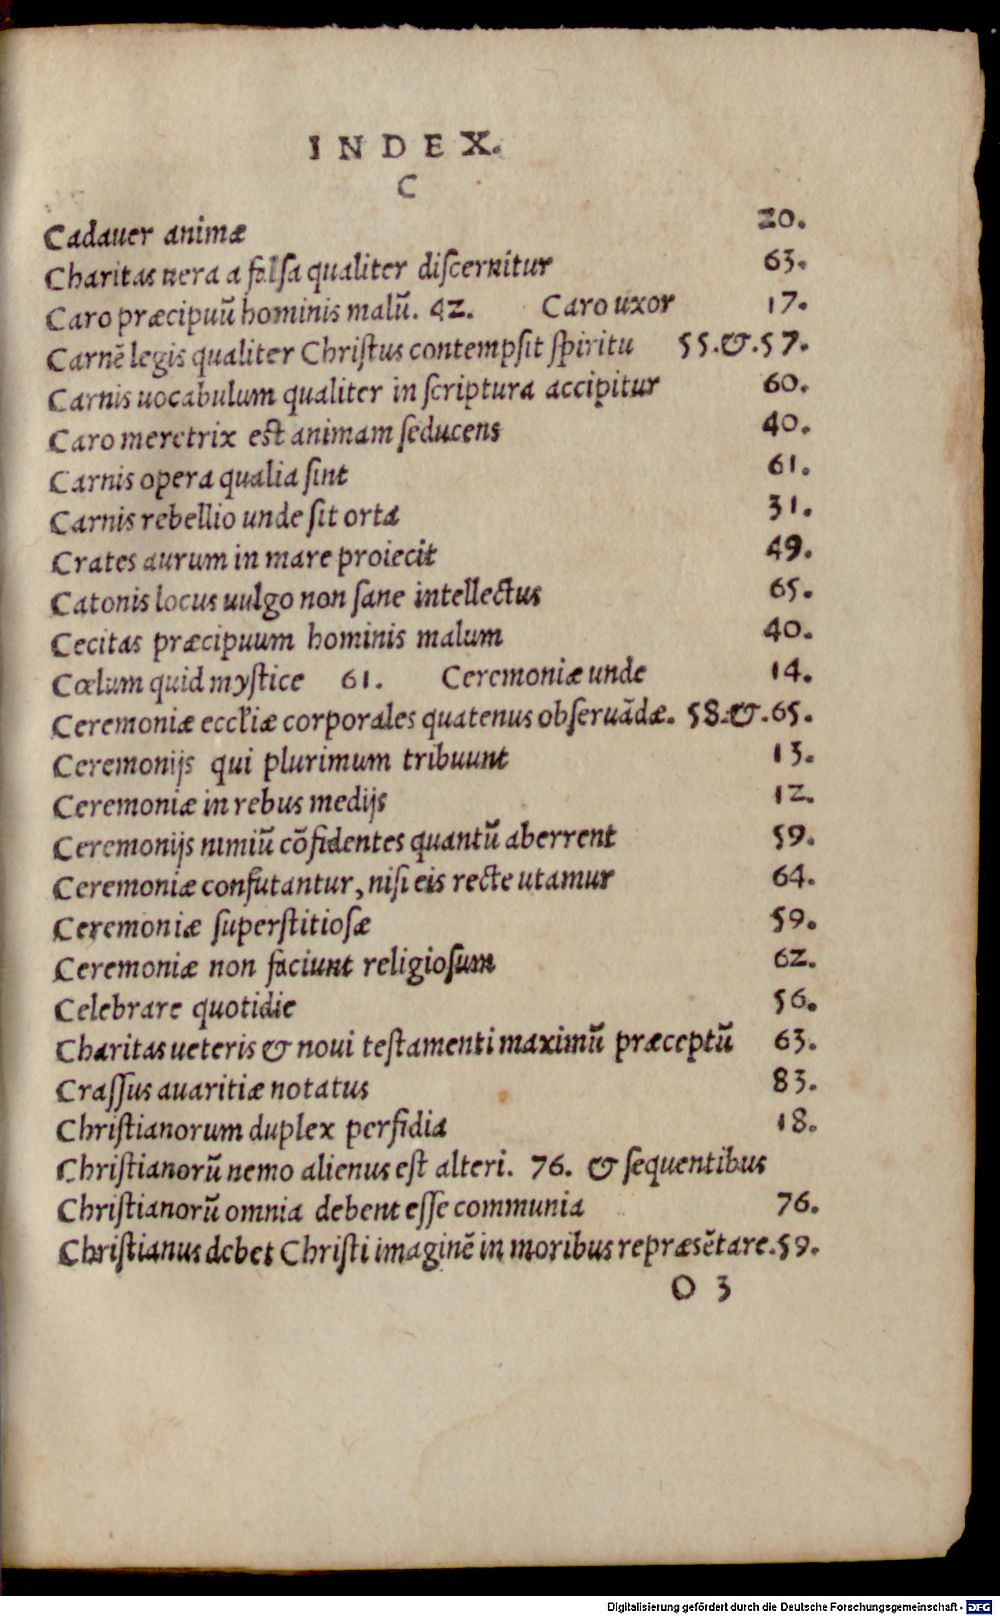 INDEX.
C
Cadauer animæ 20.
Charitas uera a falsa qualiter discernitur 63.
Caro præcipuũ hominis malũ. 42. Caro uxor 17.
Carnẽ legis qualiter Christus contempsit spiritu 55.&.57.
Carnis uocabulum qualiter in scriptura accipitur 60.
Caro meretrix est animam seducens 40.
Carnis opera qualia sint 61.
Carnis rebellio unde sit orta 31.
Crates aurum in mare proiecit 49.
Catonis locus uulgo non sane intellectus 65.
Cecitas præcipuum hominis malum 40.
Cœlum quid mystice 61. Ceremoniæ unde 14.
Ceremoniæ eccl'iæ corporales quatenus obseruãdæ. 58.&.65.
Ceremonijs qui plurimum tribuunt 13.
Ceremoniæ in rebus medijs 12.
Ceremonijs nimiũ cõfidentes quantũ aberrent 59.
Ceremoniæ confutantur, nisi eis recte utamur 64.
Ceremoniæ superstitiosæ 59.
Ceremoniæ non faciunt religiosum 62.
Celebrare quotidie 56.
Charitas ueteris & noui testamenti maximũ præceptũ 63.
Crassus auaritiæ notatus 83.
Christianorum duplex perfidia 18.
Christianorũ nemo alienus est alteri. 76. & sequentibus
Christianorũ omnia debent esse communia 76.
Christianus debet Christi imaginẽ in moribus repræsẽtare. 59.
O 3
Digitalisierung gefördert durch die Deutsche Forschungsgemeinschaft - DFG